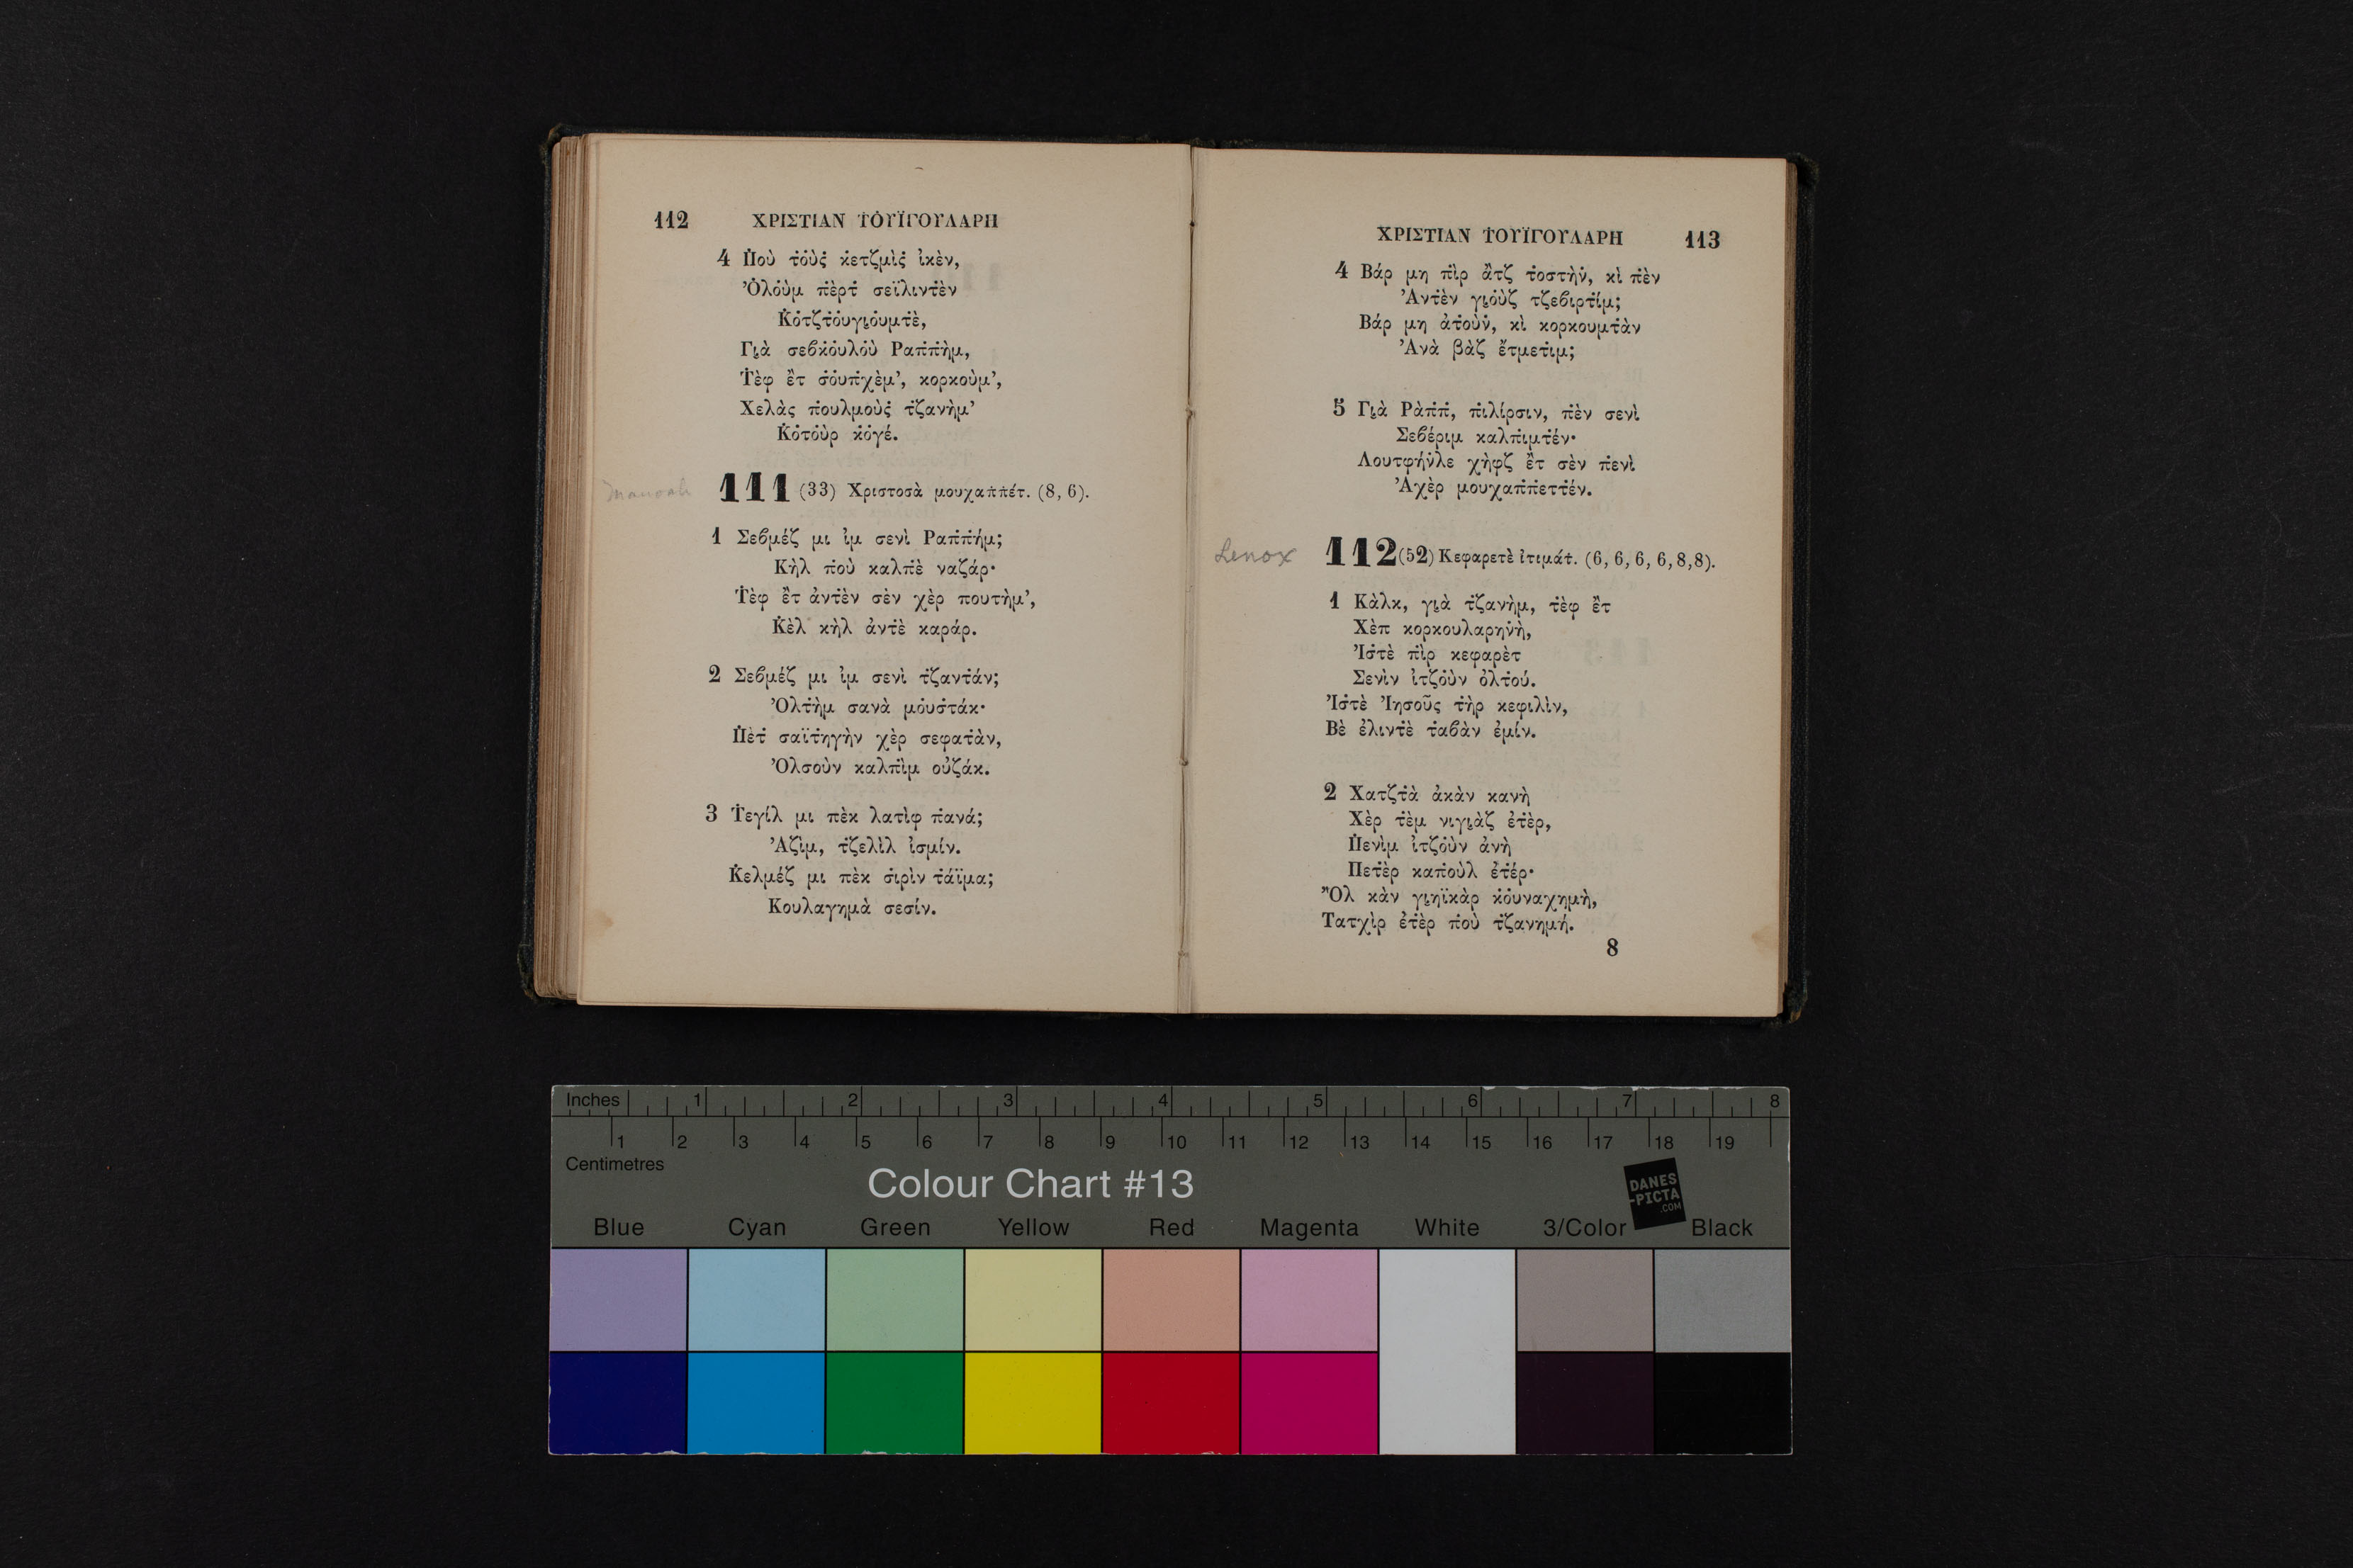 112 ΧΡΙΣΤΙΑΝ Τ̇Ο̇ΥΪΓΟΥΛΑΡΗ
4 Π̇οὺ τ̇ο̇ὺς̇ κ̇ετζμὶς̇ ἰκὲν,
Ὀ̇λο̇ὺμ π̇ὲρτ̇ σεϊλιντ̇ὲν
Κ̇ο̇τζτ̇ο̇υγιο̇υμτ̇ὲ,
Γιὰ σεβκ̇ο̇υλο̇ὺ Ραπ̇π̇ὴμ,
Τ̇ὲφ ἒτ σ̇ο̇υπ̇χὲμ’, κορκοὺμ’,
Χελὰς π̇ουλμοὺς̇ τ̇ζανὴμ’
Κ̇ο̇τ̇ο̇ὺρ κ̇ο̇γέ.
111 (33) Χριστοσὰ μουχαπ̇π̇έτ. (8, 6).
1 Σεβμέζ μι ἰμ σενὶ Ραπ̇π̇ήμ;
Κὴλ π̇οὺ καλπ̇ὲ ναζάρ·
Τ̇ὲφ ἒτ ἀντ̇ὲν σὲν χὲρ πουτὴμ’,
Κ̇ὲλ κὴλ ἀντ̇ὲ καράρ.
2 Σεβμέζ μι ἰμ σενὶ τ̇ζαντ̇άν;
Ὀλτ̇ὴμ σανὰ μο̇υς̇τάκ·
Π̇ὲτ̇ σαϊτ̇ηγὴν χὲρ σεφατ̇ὰν,
Ὀλσοὺν καλπ̇ὶμ οὐζάκ.
3 Τ̇εγίλ μι πὲκ λατὶφ π̇ανά;
Ἀζὶμ, τ̇ζελὶλ ἰσμίν.
Κ̇ελμέζ μι πὲκ σ̇ιρὶν τ̇άϊμα;
Κουλαγημὰ σεσίν.
ΧΡΙΣΤΙΑΝ Τ̇ΟΥΪΓΟΥΛΑΡΗ 113
4 Βάρ μη π̇ὶρ ἂτζ τ̇οστὴν̇, κὶ π̇ὲν
Ἀντ̇ὲν γιο̇ὺζ τζεβιρτ̇ίμ;
Βάρ μη ἀτ̇οὺν̇, κὶ κορκουμτ̇ὰν
Ἀνὰ βὰζ ἔτμετ̇ιμ;
5 Γιὰ Ρὰπ̇π̇, π̇ιλίρσιν, π̇ὲν σενὶ
Σεβέριμ καλπ̇ιμτ̇έν·
Λουτφήν̇λε χὴφζ ἒτ σὲν π̇ενὶ
Ἀχὲρ μουχαπ̇π̇εττ̇έν.
Lenox 112 (52) Κεφαρετὲ ἰτιμάτ̇. (6, 6, 6, 6, 8, 8).
1 Κὰλκ, γιὰ τ̇ζανὴμ, τ̇ὲφ ἒτ
Χὲπ κορκουλαρην̇ὴ,
Ἰς̇τὲ π̇ὶρ κεφαρὲτ
Σενὶν ἰτζο̇ὺν ὀλτ̇ού.
Ἰς̇τὲ Ἰησοῦς τ̇ὴρ κεφιλὶν,
Βὲ ἐλιντ̇ὲ τ̇αβὰν ἐμίν.
2 Χατζτ̇ὰ ἀκὰν κανὴ
Χὲρ τ̇ὲμ νιγιὰζ ἐτ̇ὲρ,
Π̇ενὶμ ἰτζο̇ὺν ἀνὴ
Πετ̇ὲρ καπ̇οὺλ ἐτ̇έρ·
Ὂλ κὰν γιηϊκὰρ κ̇ο̇υναχημὴ,
Τατχὶρ ἐτ̇ὲρ π̇οὺ τ̇ζανημή.
8
Inches 1 2 3 4 5 6 7 8
1 2 3 4 5 6 7 8 9 10 11 12 13 14 15 16 17 18 19
Centimetres
Colour Chart #13
DANES
-PICTA
.COM
Blue Cyan Green Yellow Red Magenta White 3/Color Black